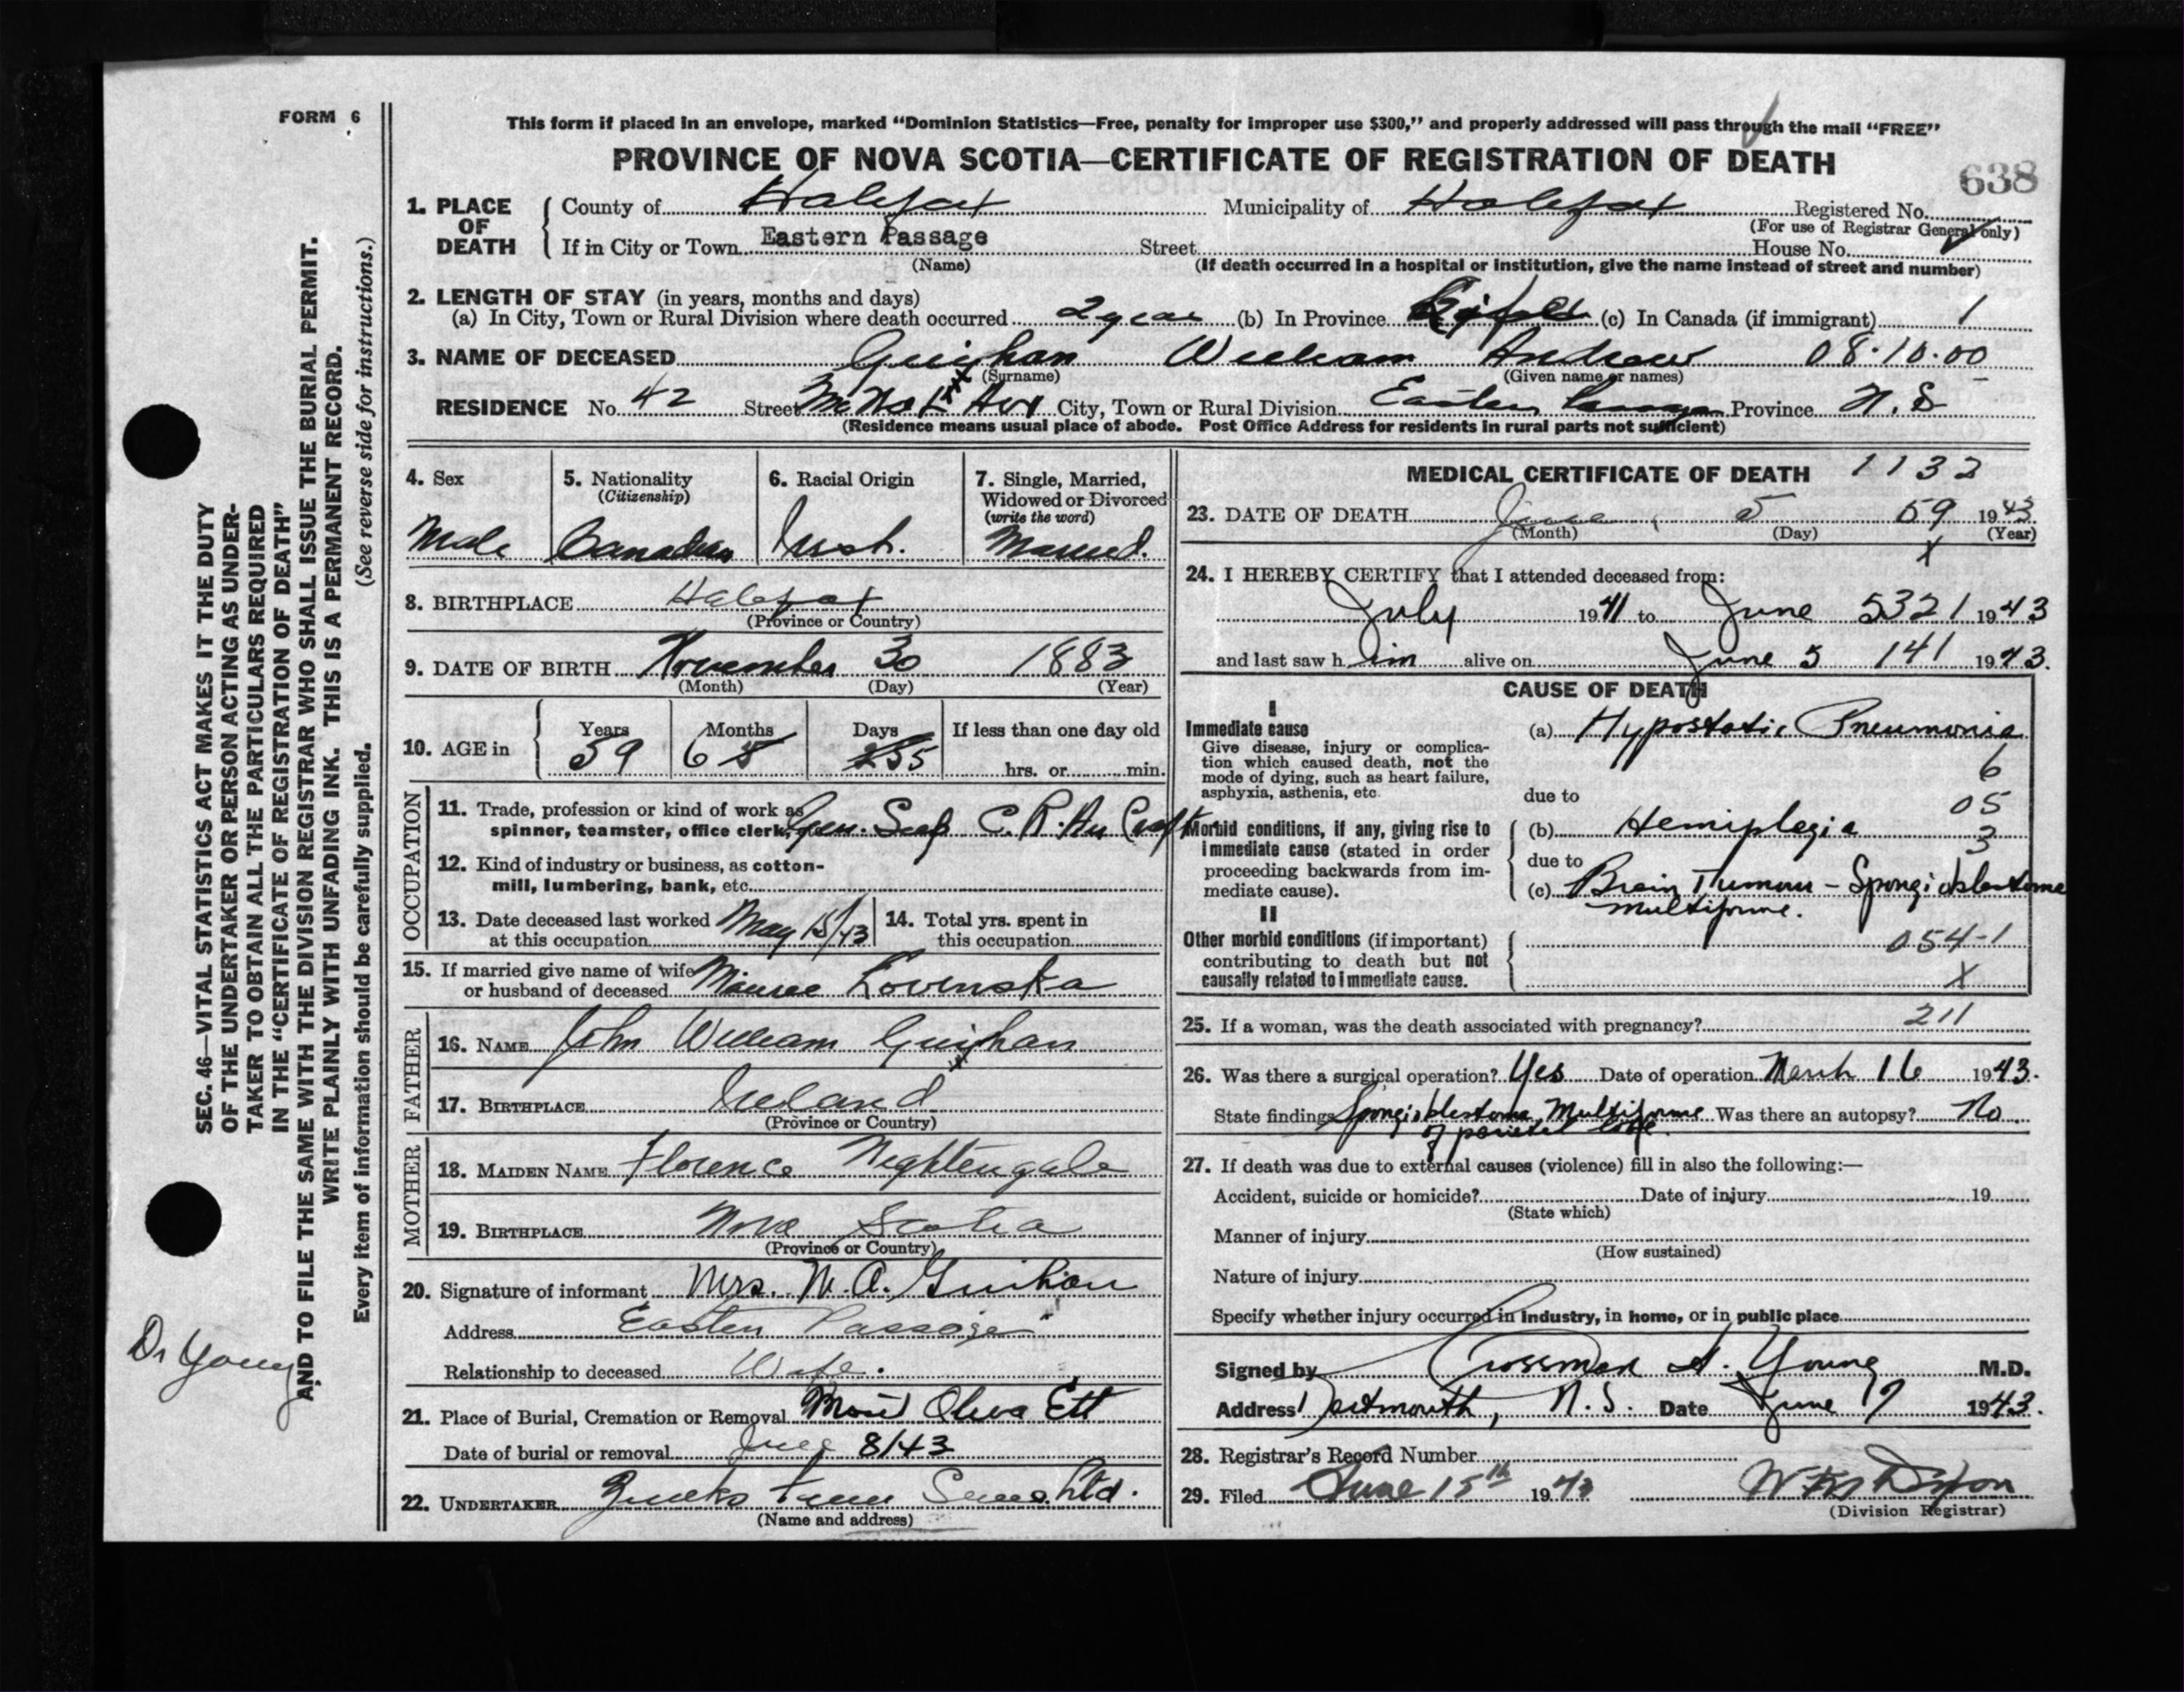 FORM 6
This form if placed in an envelope, marked "Dominion Statistics—Free, penalty for improper use $300," and properly addressed will pass through the mail "FREE"
PROVINCE OF NOVA SCOTIA—CERTIFICATE OF REGISTRATION OF DEATH
638
1. PLACE OF DEATH
County of Halifax Municipality of Halifax Registered No.
(For use of Registrar General only)
If in City or Town Eastern Passage Street House No.
(Name) (If death occurred in a hospital or institution, give the name instead of street and number)
2. LENGTH OF STAY (in years, months and days)
(a) In City, Town or Rural Division where death occurred 2 year (b) In Province (c) In Canada (if immigrant) 1
3. NAME OF DECEASED Guighan William Andrew 08.10.00
(Surname) (Given name or names)
RESIDENCE No. 42 Street City, Town or Rural Division Eastern Passage Province N.S
(Residence means usual place of abode. Post Office Address for residents in rural parts not sufficient)
4. Sex
Male
5. Nationality
(Citizenship)
Canadian
6. Racial Origin
Irish.
7. Single, Married,
Widowed or Divorced
(write the word)
Married.
8. BIRTHPLACE Halifax
(Province or Country)
9. DATE OF BIRTH November 30 1883
(Month) (Day) (Year)
10. AGE in
Years Months Days If less than one day old
59 6 5 hrs. or min.
OCCUPATION
11. Trade, profession or kind of work as
spinner, teamster, office clerk, C.R. Air Craft
12. Kind of industry or business, as cotton-
mill, lumbering, bank, etc.
13. Date deceased last worked May 15/43
at this occupation
14. Total yrs. spent in
this occupation
15. If married give name of wife
or husband of deceased Lovenska
FATHER
16. NAME John William Guighan
17. BIRTHPLACE Ireland
(Province or Country)
MOTHER
18. MAIDEN NAME Florence Nightengale
19. BIRTHPLACE Nova Scotia
(Province or Country)
20. Signature of informant Mrs. W. A. Guihan
Address Eastern Passage
Relationship to deceased Wife.
21. Place of Burial, Cremation or Removal
Date of burial or removal June 8/43
22. UNDERTAKER Ltd.
(Name and address)
MEDICAL CERTIFICATE OF DEATH 1132
23. DATE OF DEATH June 5 59 1943
(Month) (Day) (Year)
X
24. I HEREBY CERTIFY that I attended deceased from:
July 1941 to June 5 321 1943
and last saw h im alive on June 5 141 1943.
CAUSE OF DEATH
I
Immediate cause
Give disease, injury or complica-
tion which caused death, not the
mode of dying, such as heart failure,
asphyxia, asthenia, etc.
(a) Hypostatic Pneumonia
6
due to
05
Morbid conditions, if any, giving rise to
immediate cause (stated in order
proceeding backwards from im-
mediate cause).
(b) Hemiplegia 3
due to
(c) Brain Tumour - Spongioblastoma
multiforme.
II
Other morbid conditions (if important)
contributing to death but not
causally related to immediate cause.
054-1
X
25. If a woman, was the death associated with pregnancy? 211
26. Was there a surgical operation? Yes Date of operation March 16 1943.
State findings Spongioblastoma Multiforme Was there an autopsy? No
of parietal lobe.
27. If death was due to external causes (violence) fill in also the following:—
Accident, suicide or homicide? Date of injury 19
(State which)
Manner of injury
(How sustained)
Nature of injury
Specify whether injury occurred in industry, in home, or in public place
Signed by Crossman H. Young M.D.
Address Dartmouth, N.S. Date June 7 1943.
28. Registrar's Record Number
29. Filed June 15th 1943 Dixon
(Division Registrar)
SEC. 46—VITAL STATISTICS ACT MAKES IT THE DUTY
OF THE UNDERTAKER OR PERSON ACTING AS UNDER-
TAKER TO OBTAIN ALL THE PARTICULARS REQUIRED
IN THE "CERTIFICATE OF REGISTRATION OF DEATH"
AND TO FILE THE SAME WITH THE DIVISION REGISTRAR WHO SHALL ISSUE THE BURIAL PERMIT.
WRITE PLAINLY WITH UNFADING INK. THIS IS A PERMANENT RECORD.
Every item of information should be carefully supplied. (See reverse side for instructions.)
Dr Young